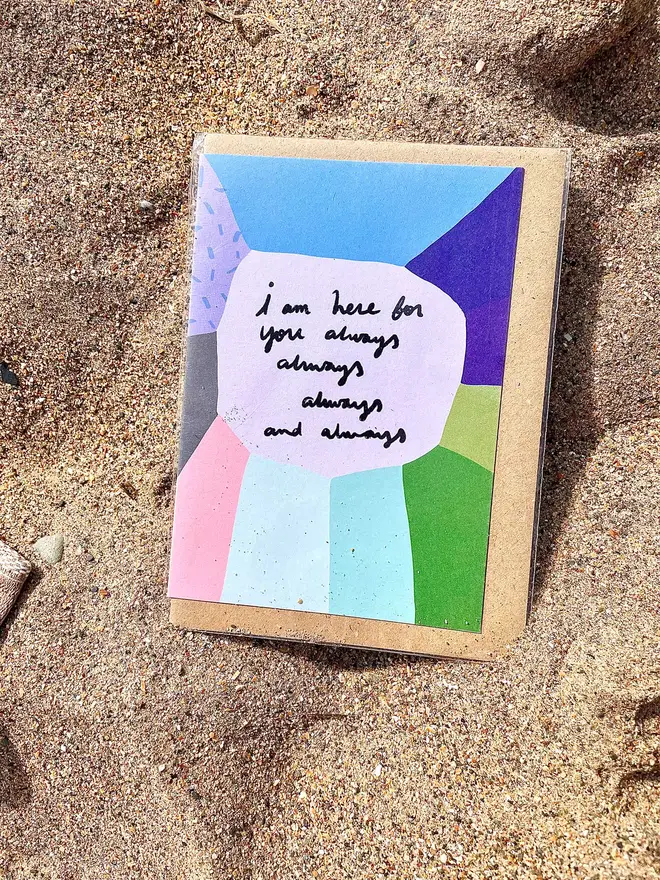 i am here for
you always
always
always
and always